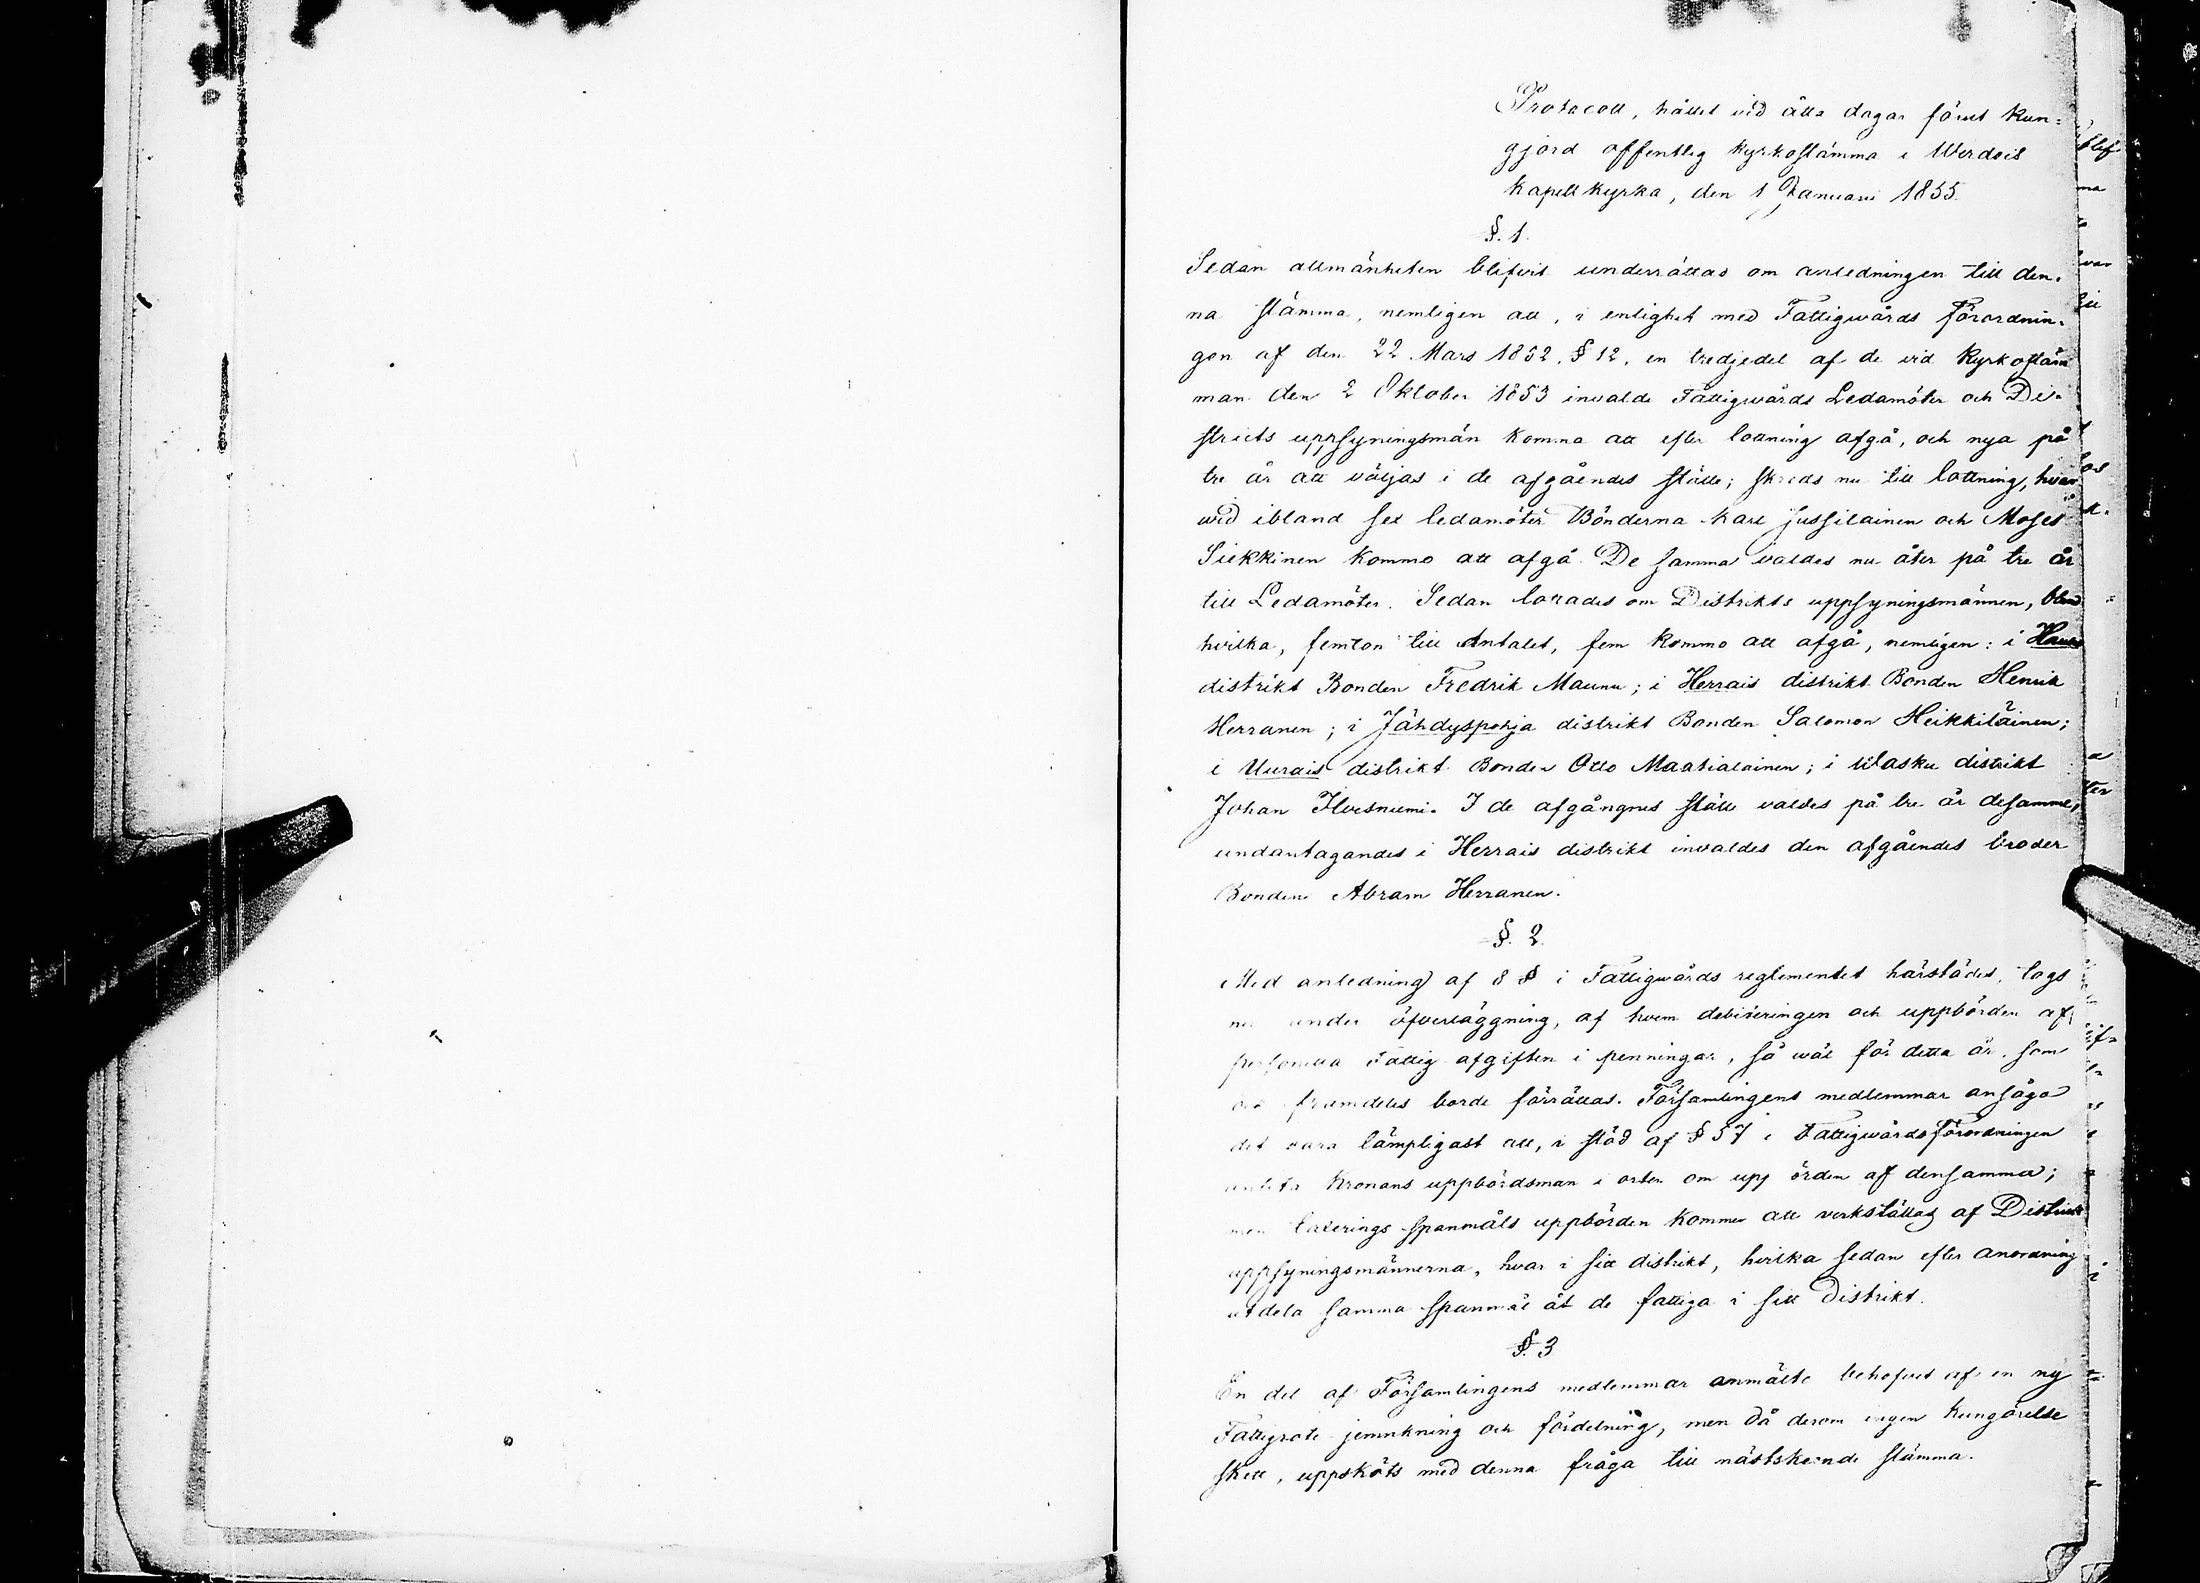 Protocoll, hållet vid åtta dagar förut kun=
gjord offentlig kyrkostämma i Wirdois
kapell kyrka, den 1 Januarii 1855.
§. 1.
Sedan allmänheten blifvit underrättad om anledningen till den=
na stämma, nemligen att, i enlighet med Fattigwårds förordnin=
gen af den 22 Mars 1852, § 12, en tredjedel af de vid kyrkostäm
man den 2 Oktober 1853 invalde Fattigwårds Ledamöter och Di=
stricts uppsyningsmän komma att efter lottning afgå, och nya på
tre år att väljas i de afgåendes ställe; skreds nu till lottning, hvar
wid ibland sex ledamöter Bönderna Karl Jussilainen och Moses
Siekkinen kommo att afgå. De samma valdes nu åter på tre år
till Ledamöter. Sedan lottades om Distrikts uppsyningsmännen, bland
hvilka, femton till Antalet, fem kommo att afgå, nemligen: i
distrikt Bonden Fredrik Maunu; i Herrais distrikt Bonden Henrik
Herranen; i Jähdyspohja distrikt Bonden Salomon Heikkiläinen;
i Uurais distrikt Bonden Otto Maatialainen; i Wasku distrikt
Johan Ilvesniemi. I de afgångnes ställe valdes på tre år desamme,
undantagandes i Herrais distrikt invaldes den afgåendes broder
Bonden Abram Herranen.
§. 2.
Med anledning af 8 § i Fattigwårds reglementet härstädes, togs
nu under öfverläggning, af hvem debiteringen och uppbörden af
personella Fattig afgiften i penningar, så wäl för detta år, som
och framdeles borde förrättas. Församlingens medlemmar ansågo
det vara lämpligast att, i stöd af § 57 i Fattigwårdsförordningen
anlita Kronans uppbördsman i orten om upp örden af densamma;
men taxerings spanmåls uppbörden kommer att verkställas af Distrikts
uppsyningsmännerna, hvar i sitt distrikt, hvilka sedan efter anordning
utdela samma spanmål åt de fattiga i sitt distrikt.
§. 3
En del af Församlingens medlemmar anmälte behofvet af en ny
Fattigrote jemnkning och fördelning, men då derom ingen kungörelse
skett, uppsköts med denna fråga till nästskeende stämma.